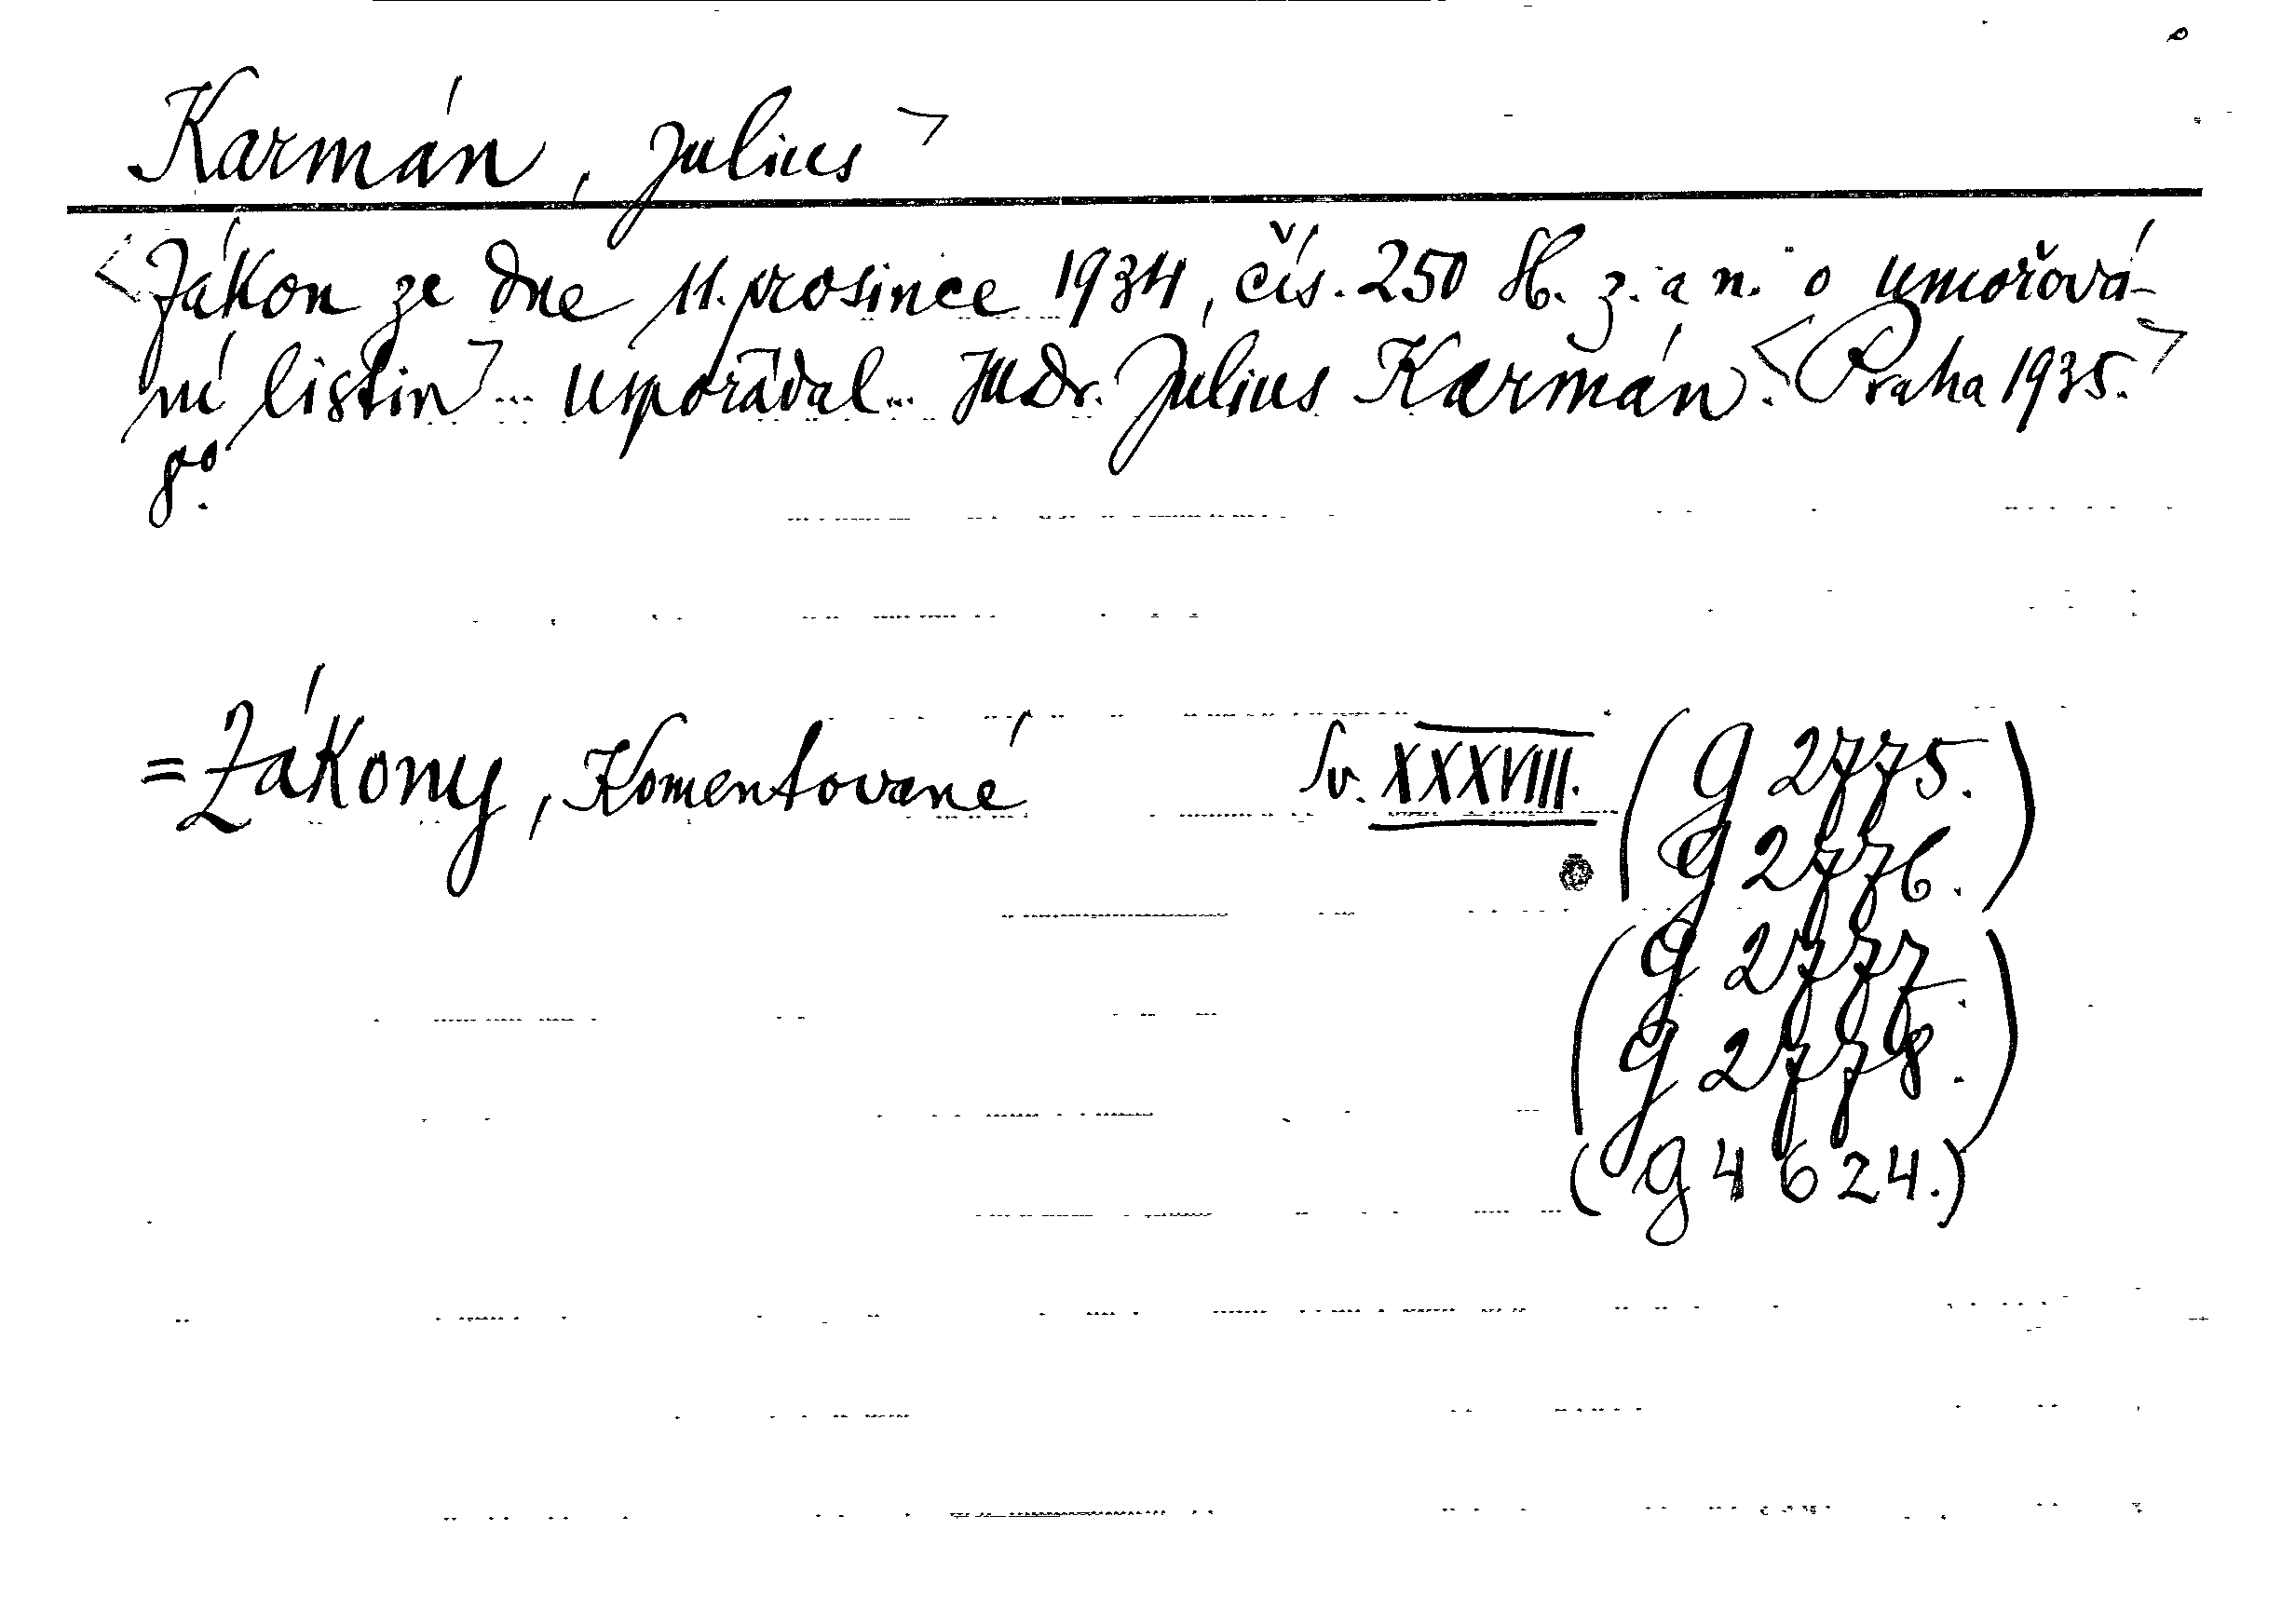 Karmán, Julius>
<Zákon ze dne 11. prosince 1934, čís. 250 Sb. z. a n. o umořová-
ní listin> ... uspořádal ... JUDr. Julius Karmán. <Praha 1935.>
8°.
= Zákony, Komentované Sv. XXXVIII. (g 2775.
g 2776.)
(g 2777.
g 2778.)
(g 4624.)